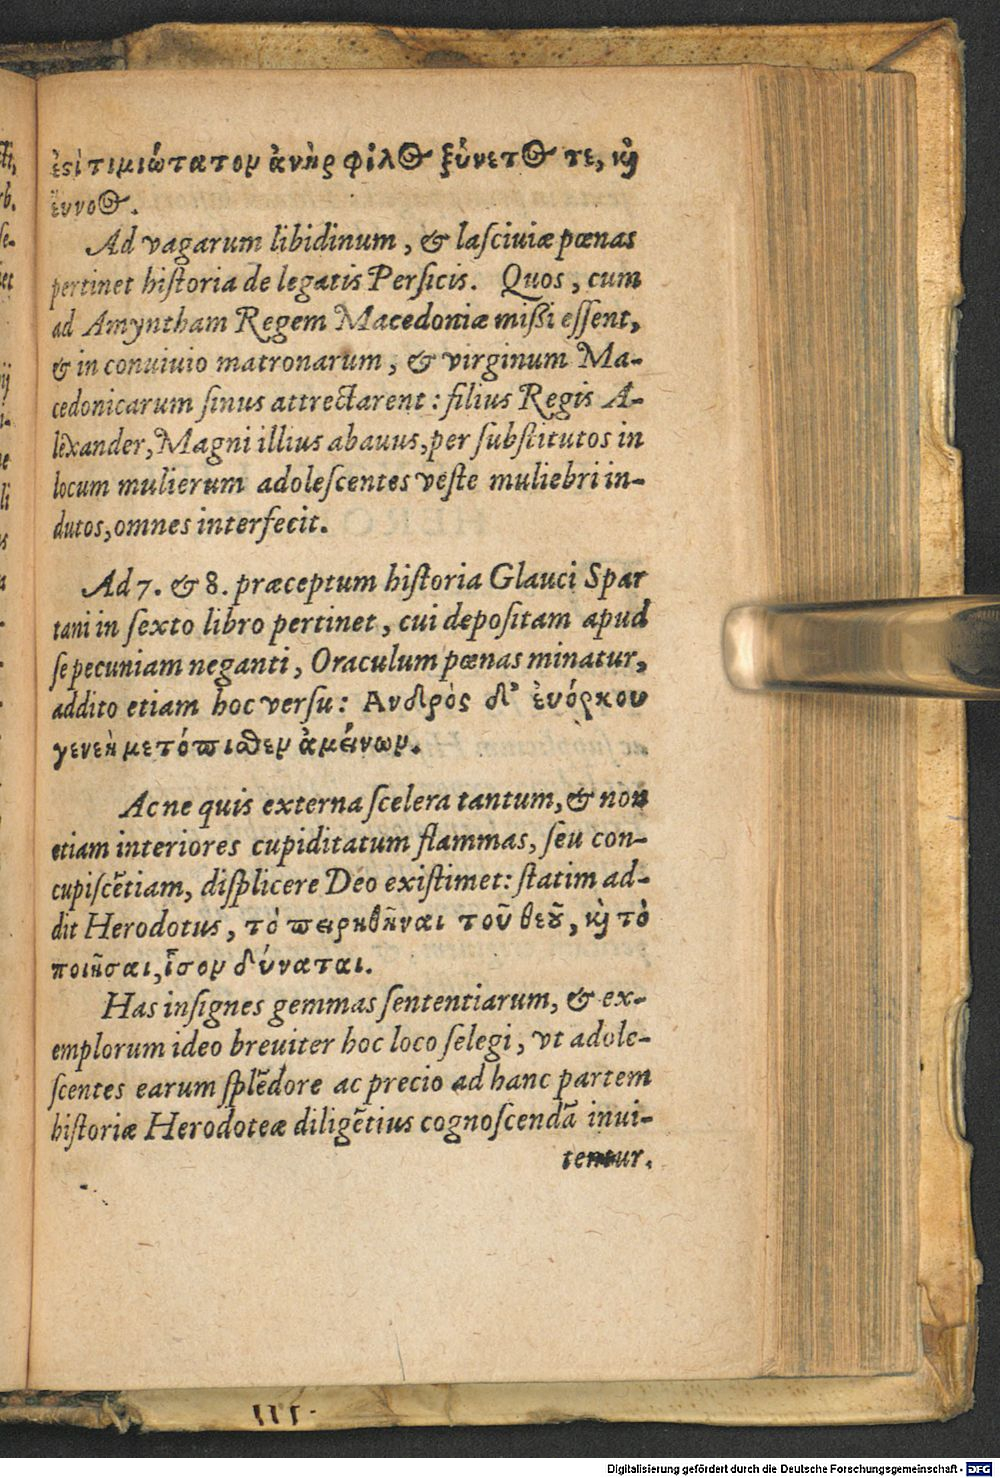 ἐστὶ τιμιώτατον ἀνὴρ φίλος ξύνετος τε, καὶ
ἔυνοος.
Ad vagarum libidinum, & laſciuiæ pœnas
pertinet hiſtoria de legatis Perſicis. Quos, cum
ad Amyntham Regem Macedoniæ miſſi eſſent,
& in conuiuio matronarum, & virginum Ma-
cedonicarum ſinus attrectarent: filius Regis A-
lexander, Magni illius abauus, per ſubſtitutos in
locum mulierum adoleſcentes veſte muliebri in-
dutos, omnes interfecit.
Ad 7. & 8. præceptum hiſtoria Glauci Spar
tani in ſexto libro pertinet, cui depoſitam apud
ſe pecuniam neganti, Oraculum pœnas minatur,
addito etiam hoc verſu: Ανδρὸς δ' ἐυόρκου
γενεὴ μετόπισθεν ἀμείνων.
Ac ne quis externa ſcelera tantum, & non
etiam interiores cupiditatum flammas, ſeu con-
cupiſcẽtiam, diſplicere Deo exiſtimet: ſtatim ad-
dit Herodotus, τὸ πειρηθῆναι τοῦ θεοῦ, καὶ τὸ
ποιῆσαι, ἴσον δύναται.
Has inſignes gemmas ſententiarum, & ex-
emplorum ideo breuiter hoc loco ſelegi, vt adole-
ſcentes earum ſplẽdore ac precio ad hanc partem
hiſtoriæ Herodoteæ diligẽtius cognoſcendã inui-
tentur.
Digitalisierung gefördert durch die Deutsche Forschungsgemeinschaft - DFG